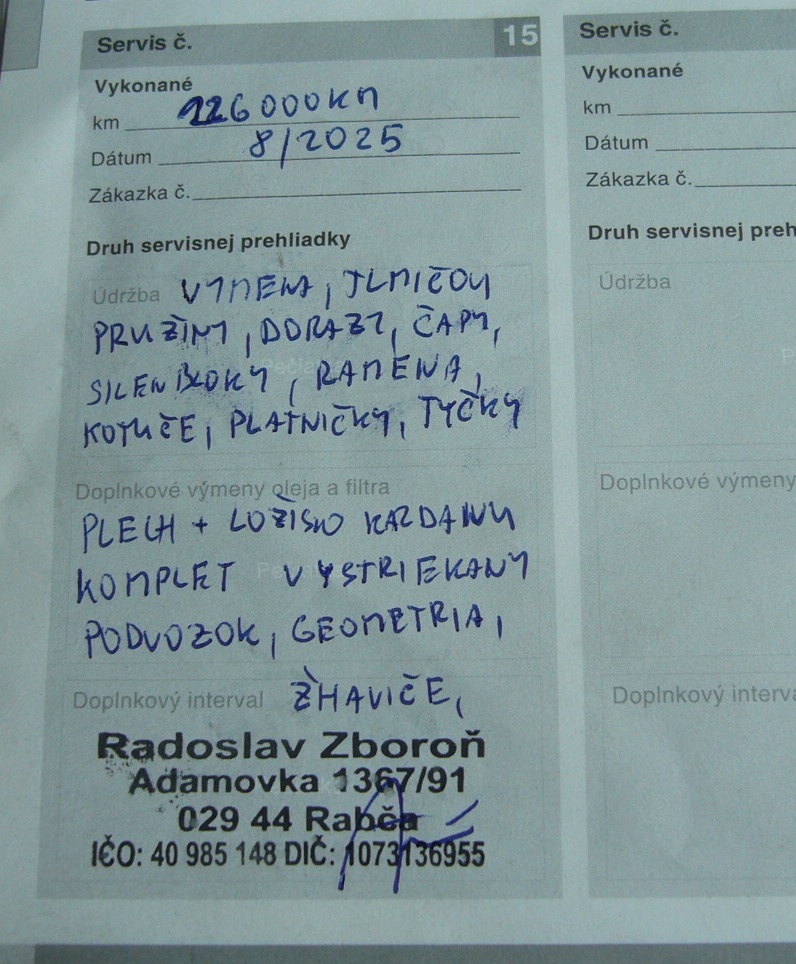 Servis č. 15
Vykonané
km 226000KM
Dátum 8/2025
Zákazka č.
Druh servisnej prehliadky
Údržba VÝMENA, TLMIČOV
PRUŽINY, DORAZY, ČAPY,
SILENBLOKY, RAMENA,
KOTUČE, PLATNIČKY, TYČKY
Doplnkové výmeny oleja a filtra
PLECH + LOŽISKO KARDANU
KOMPLET VYSTRIEKANY
PODVOZOK, GEOMETRIA,
Doplnkový interval ŽHAVIČE,
Radoslav Zboroň
Adamovka 1367/91
029 44 Rabča
IČO: 40 985 148 DIČ: 1073136955
Servis č.
Vykonané
km
Dátum
Zákazka č.
Druh servisnej preh
Údržba
Doplnkové výmeny
Doplnkový interva